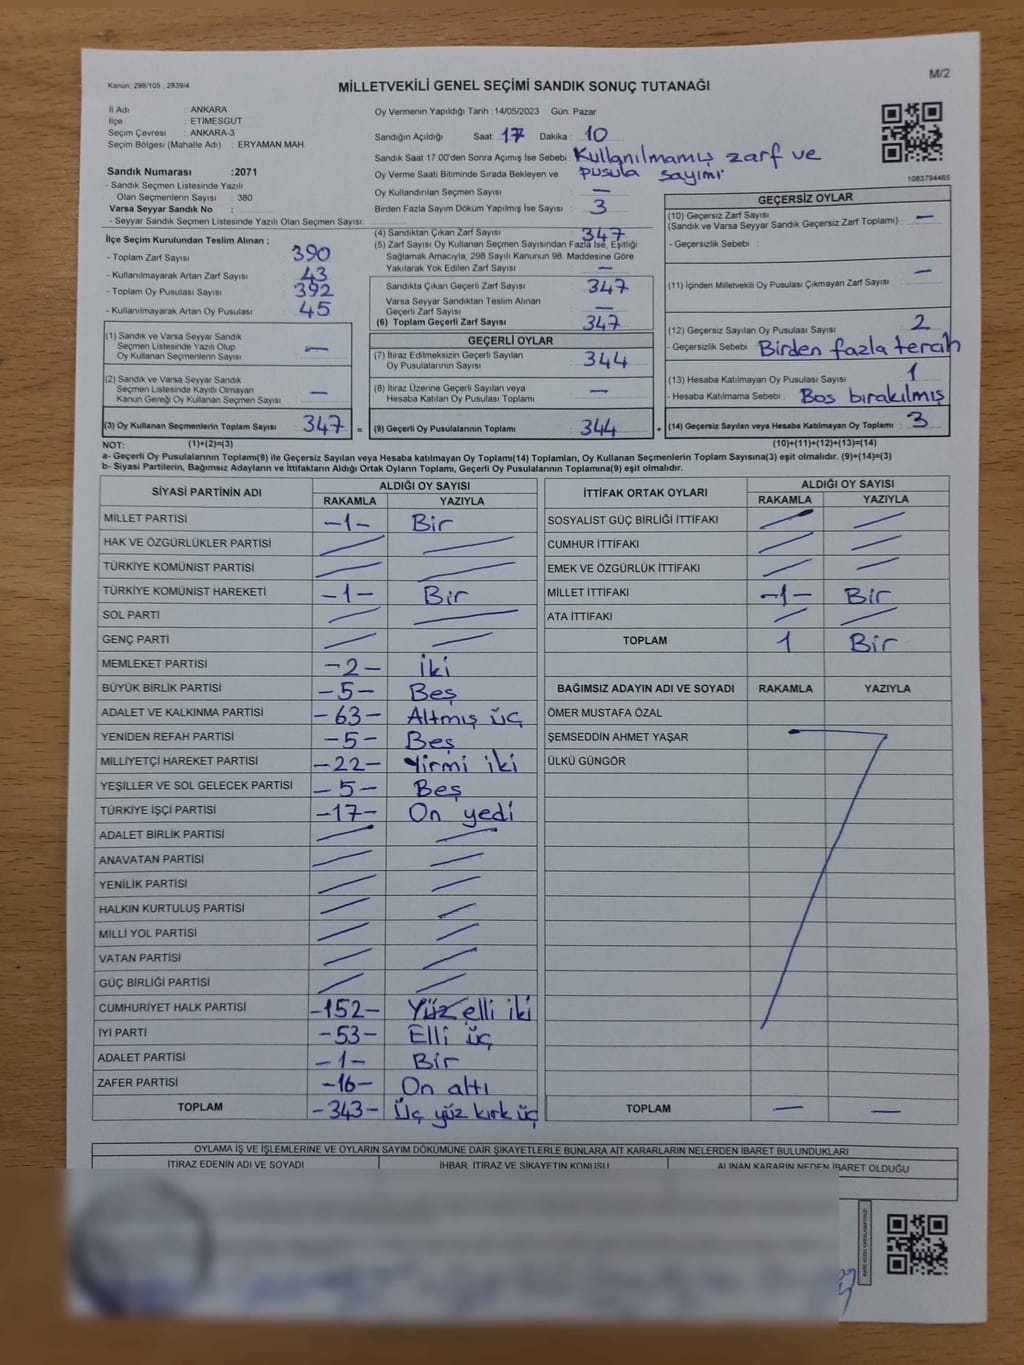 Kanun: 298/105 , 2839/4
MİLLETVEKİLİ GENEL SEÇİMİ SANDIK SONUÇ TUTANAĞI
M/2
İl Adı : ANKARA
İlçe : ETİMESGUT
Seçim Çevresi : ANKARA-3
Seçim Bölgesi (Mahalle Adı) : ERYAMAN MAH.
Sandık Numarası :2071
- Sandık Seçmen Listesinde Yazılı
Olan Seçmenlerin Sayısı : 380
Varsa Seyyar Sandık No :
- Seyyar Sandık Seçmen Listesinde Yazılı Olan Seçmen Sayısı:
İlçe Seçim Kurulundan Teslim Alınan ;
- Toplam Zarf Sayısı : 390
- Kullanılmayarak Artan Zarf Sayısı : 43
- Toplam Oy Pusulası Sayısı : 392
- Kullanılmayarak Artan Oy Pusulası : 45
(1) Sandık ve Varsa Seyyar Sandık
Seçmen Listesinde Yazılı Olup
Oy Kullanan Seçmenlerin Sayısı : —
(2) Sandık ve Varsa Seyyar Sandık
Seçmen Listesinde Kayıtlı Olmayan
Kanun Gereği Oy Kullanan Seçmen Sayısı : —
(3) Oy Kullanan Seçmenlerin Toplam Sayısı : 347 =
Oy Vermenin Yapıldığı Tarih :14/05/2023 Gün: Pazar
Sandığın Açıldığı Saat: 17 Dakika : 10
Sandık Saat 17.00'den Sonra Açımış İse Sebebi : Kullanılmamış zarf ve
Oy Verme Saati Bitiminde Sırada Bekleyen ve pusula sayımı
Oy Kullandırılan Seçmen Sayısı : —
Birden Fazla Sayım Döküm Yapılmış İse Sayısı : 3
(4) Sandıktan Çıkan Zarf Sayısı : 347
(5) Zarf Sayısı Oy Kullanan Seçmen Sayısından Fazla İse, Eşitliği
Sağlamak Amacıyla; 298 Sayılı Kanunun 98. Maddesine Göre
Yakılarak Yok Edilen Zarf Sayısı : —
Sandıkta Çıkan Geçerli Zarf Sayısı : 347
Varsa Seyyar Sandıktan Teslim Alınan
Geçerli Zarf Sayısı : —
(6) Toplam Geçerli Zarf Sayısı : 347
GEÇERLİ OYLAR
(7) İtiraz Edilmeksizin Geçerli Sayılan
Oy Pusulalarının Sayısı : 344
(8) İtiraz Üzerine Geçerli Sayılan veya
Hesaba Katılan Oy Pusulası Toplamı : —
(9) Geçerli Oy Pusulalarının Toplamı : 344 +
1083794465
GEÇERSİZ OYLAR
(10) Geçersiz Zarf Sayısı
(Sandık ve Varsa Seyyar Sandık Geçersiz Zarf Toplamı) : —
- Geçersizlik Sebebi :
(11) İçinden Milletvekili Oy Pusulası Çıkmayan Zarf Sayısı : —
(12) Geçersiz Sayılan Oy Pusulası Sayısı : 2
- Geçersizlik Sebebi : Birden fazla tercih
(13) Hesaba Katılmayan Oy Pusulası Sayısı : 1
- Hesaba Katılmama Sebebi : Boş bırakılmış
(14) Geçersiz Sayılan veya Hesaba Katılmayan Oy Toplamı : 3
NOT: (1)+(2)=(3) (10)+(11)+(12)+(13)=(14)
a- Geçerli Oy Pusulalarının Toplamı(9) ile Geçersiz Sayılan veya Hesaba katılmayan Oy Toplamı(14) Toplamları, Oy Kullanan Seçmenlerin Toplam Sayısına(3) eşit olmalıdır. (9)+(14)=(3)
b- Siyasi Partilerin, Bağımsız Adayların ve İttifakların Aldığı Ortak Oyların Toplamı, Geçerli Oy Pusulalarının Toplamına(9) eşit olmalıdır.
SİYASİ PARTİNİN ADI ALDIĞI OY SAYISI
RAKAMLA YAZIYLA
MİLLET PARTİSİ -1- Bir
HAK VE ÖZGÜRLÜKLER PARTİSİ
TÜRKİYE KOMÜNİST PARTİSİ
TÜRKİYE KOMÜNİST HAREKETİ -1- Bir
SOL PARTİ
GENÇ PARTİ
MEMLEKET PARTİSİ -2- İki
BÜYÜK BİRLİK PARTİSİ -5- Beş
ADALET VE KALKINMA PARTİSİ -63- Altmış üç
YENİDEN REFAH PARTİSİ -5- Beş
MİLLİYETÇİ HAREKET PARTİSİ -22- Yirmi iki
YEŞİLLER VE SOL GELECEK PARTİSİ -5- Beş
TÜRKİYE İŞÇİ PARTİSİ -17- On yedi
ADALET BİRLİK PARTİSİ
ANAVATAN PARTİSİ
YENİLİK PARTİSİ
HALKIN KURTULUŞ PARTİSİ
MİLLİ YOL PARTİSİ
VATAN PARTİSİ
GÜÇ BİRLİĞİ PARTİSİ
CUMHURİYET HALK PARTİSİ -152- Yüz elli iki
İYİ PARTİ -53- Elli üç
ADALET PARTİSİ -1- Bir
ZAFER PARTİSİ -16- On altı
TOPLAM -343- Üç yüz kırk üç
İTTİFAK ORTAK OYLARI ALDIĞI OY SAYISI
RAKAMLA YAZIYLA
SOSYALİST GÜÇ BİRLİĞİ İTTİFAKI
CUMHUR İTTİFAKI
EMEK VE ÖZGÜRLÜK İTTİFAKI
MİLLET İTTİFAKI -1- Bir
ATA İTTİFAKI
TOPLAM 1 Bir
BAĞIMSIZ ADAYIN ADI VE SOYADI RAKAMLA YAZIYLA
ÖMER MUSTAFA ÖZAL
ŞEMSEDDİN AHMET YAŞAR
ÜLKÜ GÜNGÖR
TOPLAM — —
OYLAMA İŞ VE İŞLEMLERİNE VE OYLARIN SAYIM DÖKÜMÜNE DAİR ŞİKAYETLERLE BUNLARA AİT KARARLARIN NELERDEN İBARET BULUNDUKLARI
İTİRAZ EDENİN ADI VE SOYADI İHBAR, İTİRAZ VE ŞİKAYETİN KONUSU ALINAN KARARIN NEDEN İBARET OLDUĞU